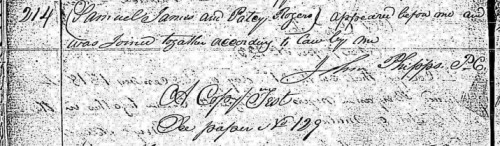 214 (Samuel James and Patey Rogers) appeared before me and
was Joined together according to law by me
John Phipps P.C.
A Copy Test
See paper No 129